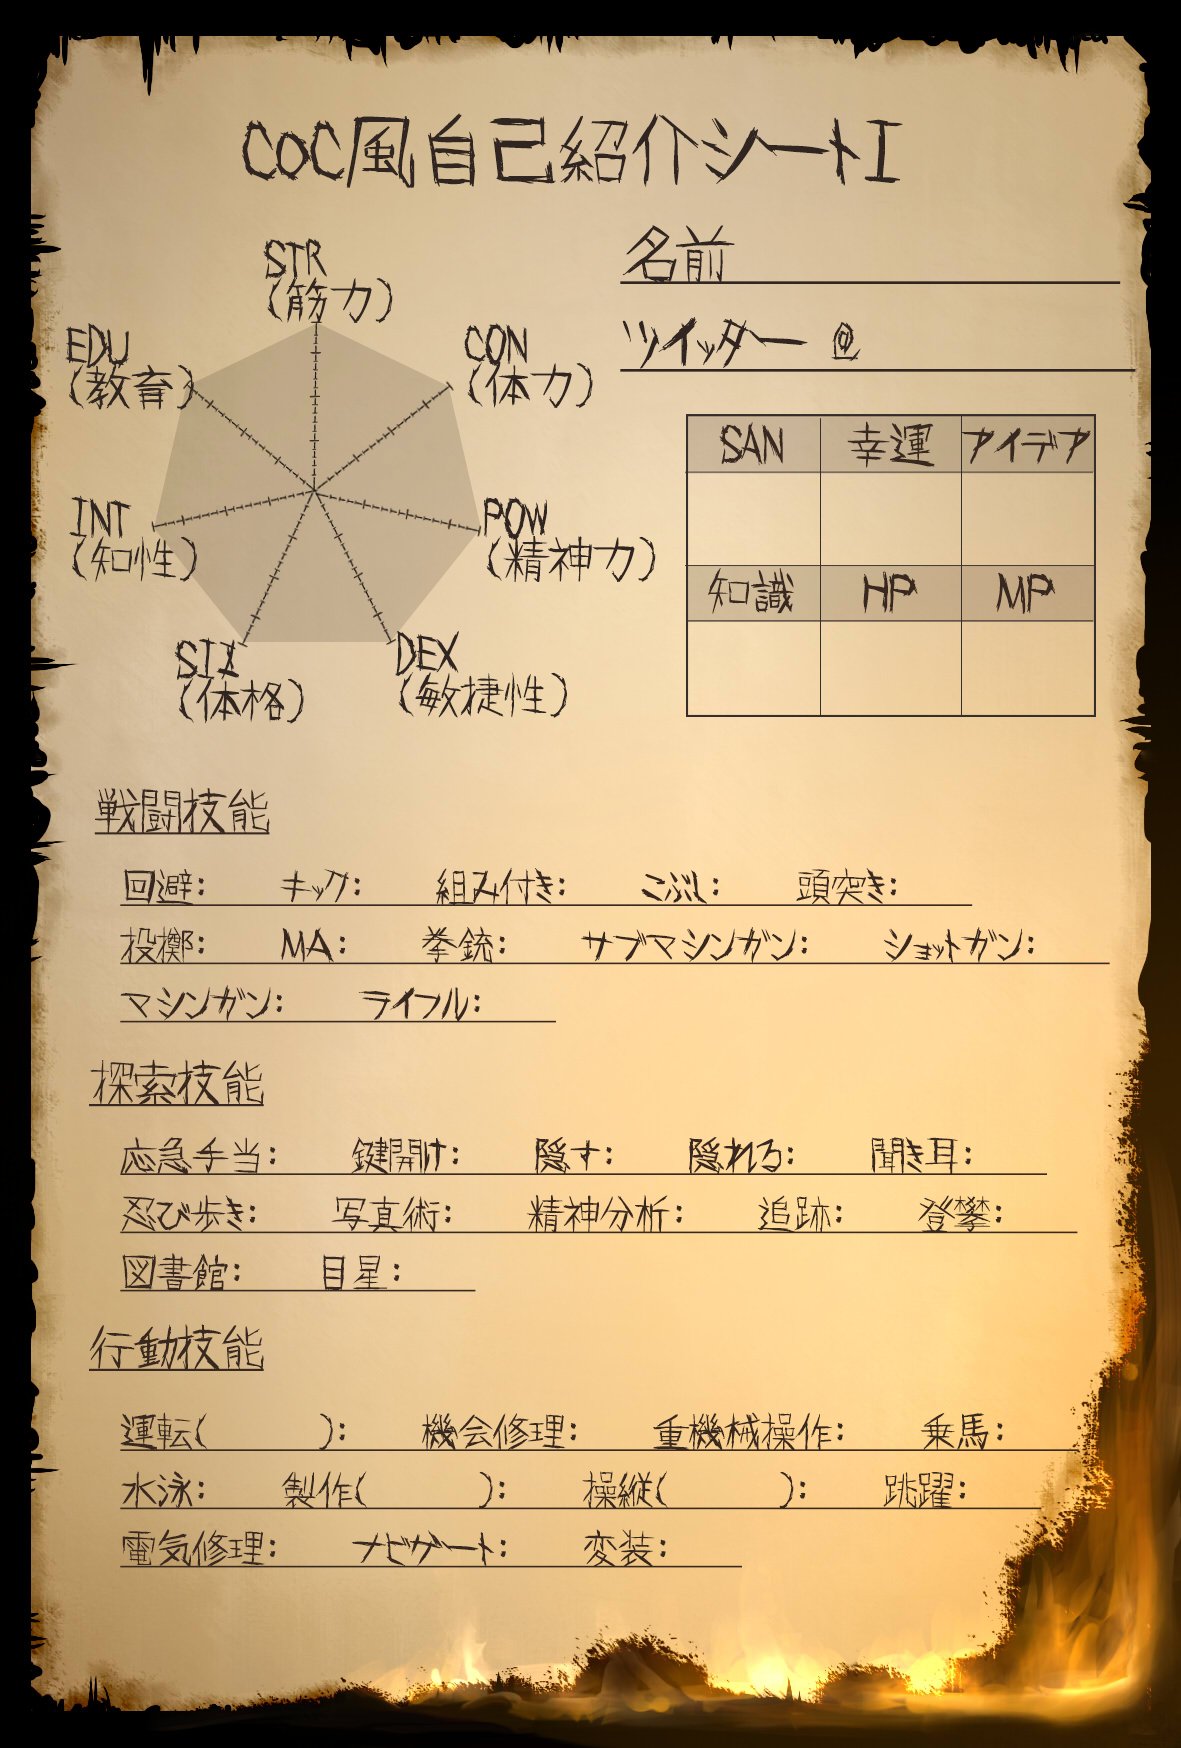 CoC風自己紹介シートI
名前
ツイッター @
STR
(筋力)
CON
(体力)
POW
(精神力)
DEX
(敏捷性)
SIZ
(体格)
INT
(知性)
EDU
(教育)
SAN 幸運 アイデア
知識 HP MP
戦闘技能
回避: キック: 組み付き: こぶし: 頭突き:
投擲: MA: 拳銃: サブマシンガン: ショットガン:
マシンガン: ライフル:
探索技能
応急手当: 鍵開け: 隠す: 隠れる: 聞き耳:
忍び歩き: 写真術: 精神分析: 追跡: 登攀:
図書館: 目星:
行動技能
運転( ): 機会修理: 重機械操作: 乗馬:
水泳: 製作( ): 操縦( ): 跳躍:
電気修理: ナビゲート: 変装: